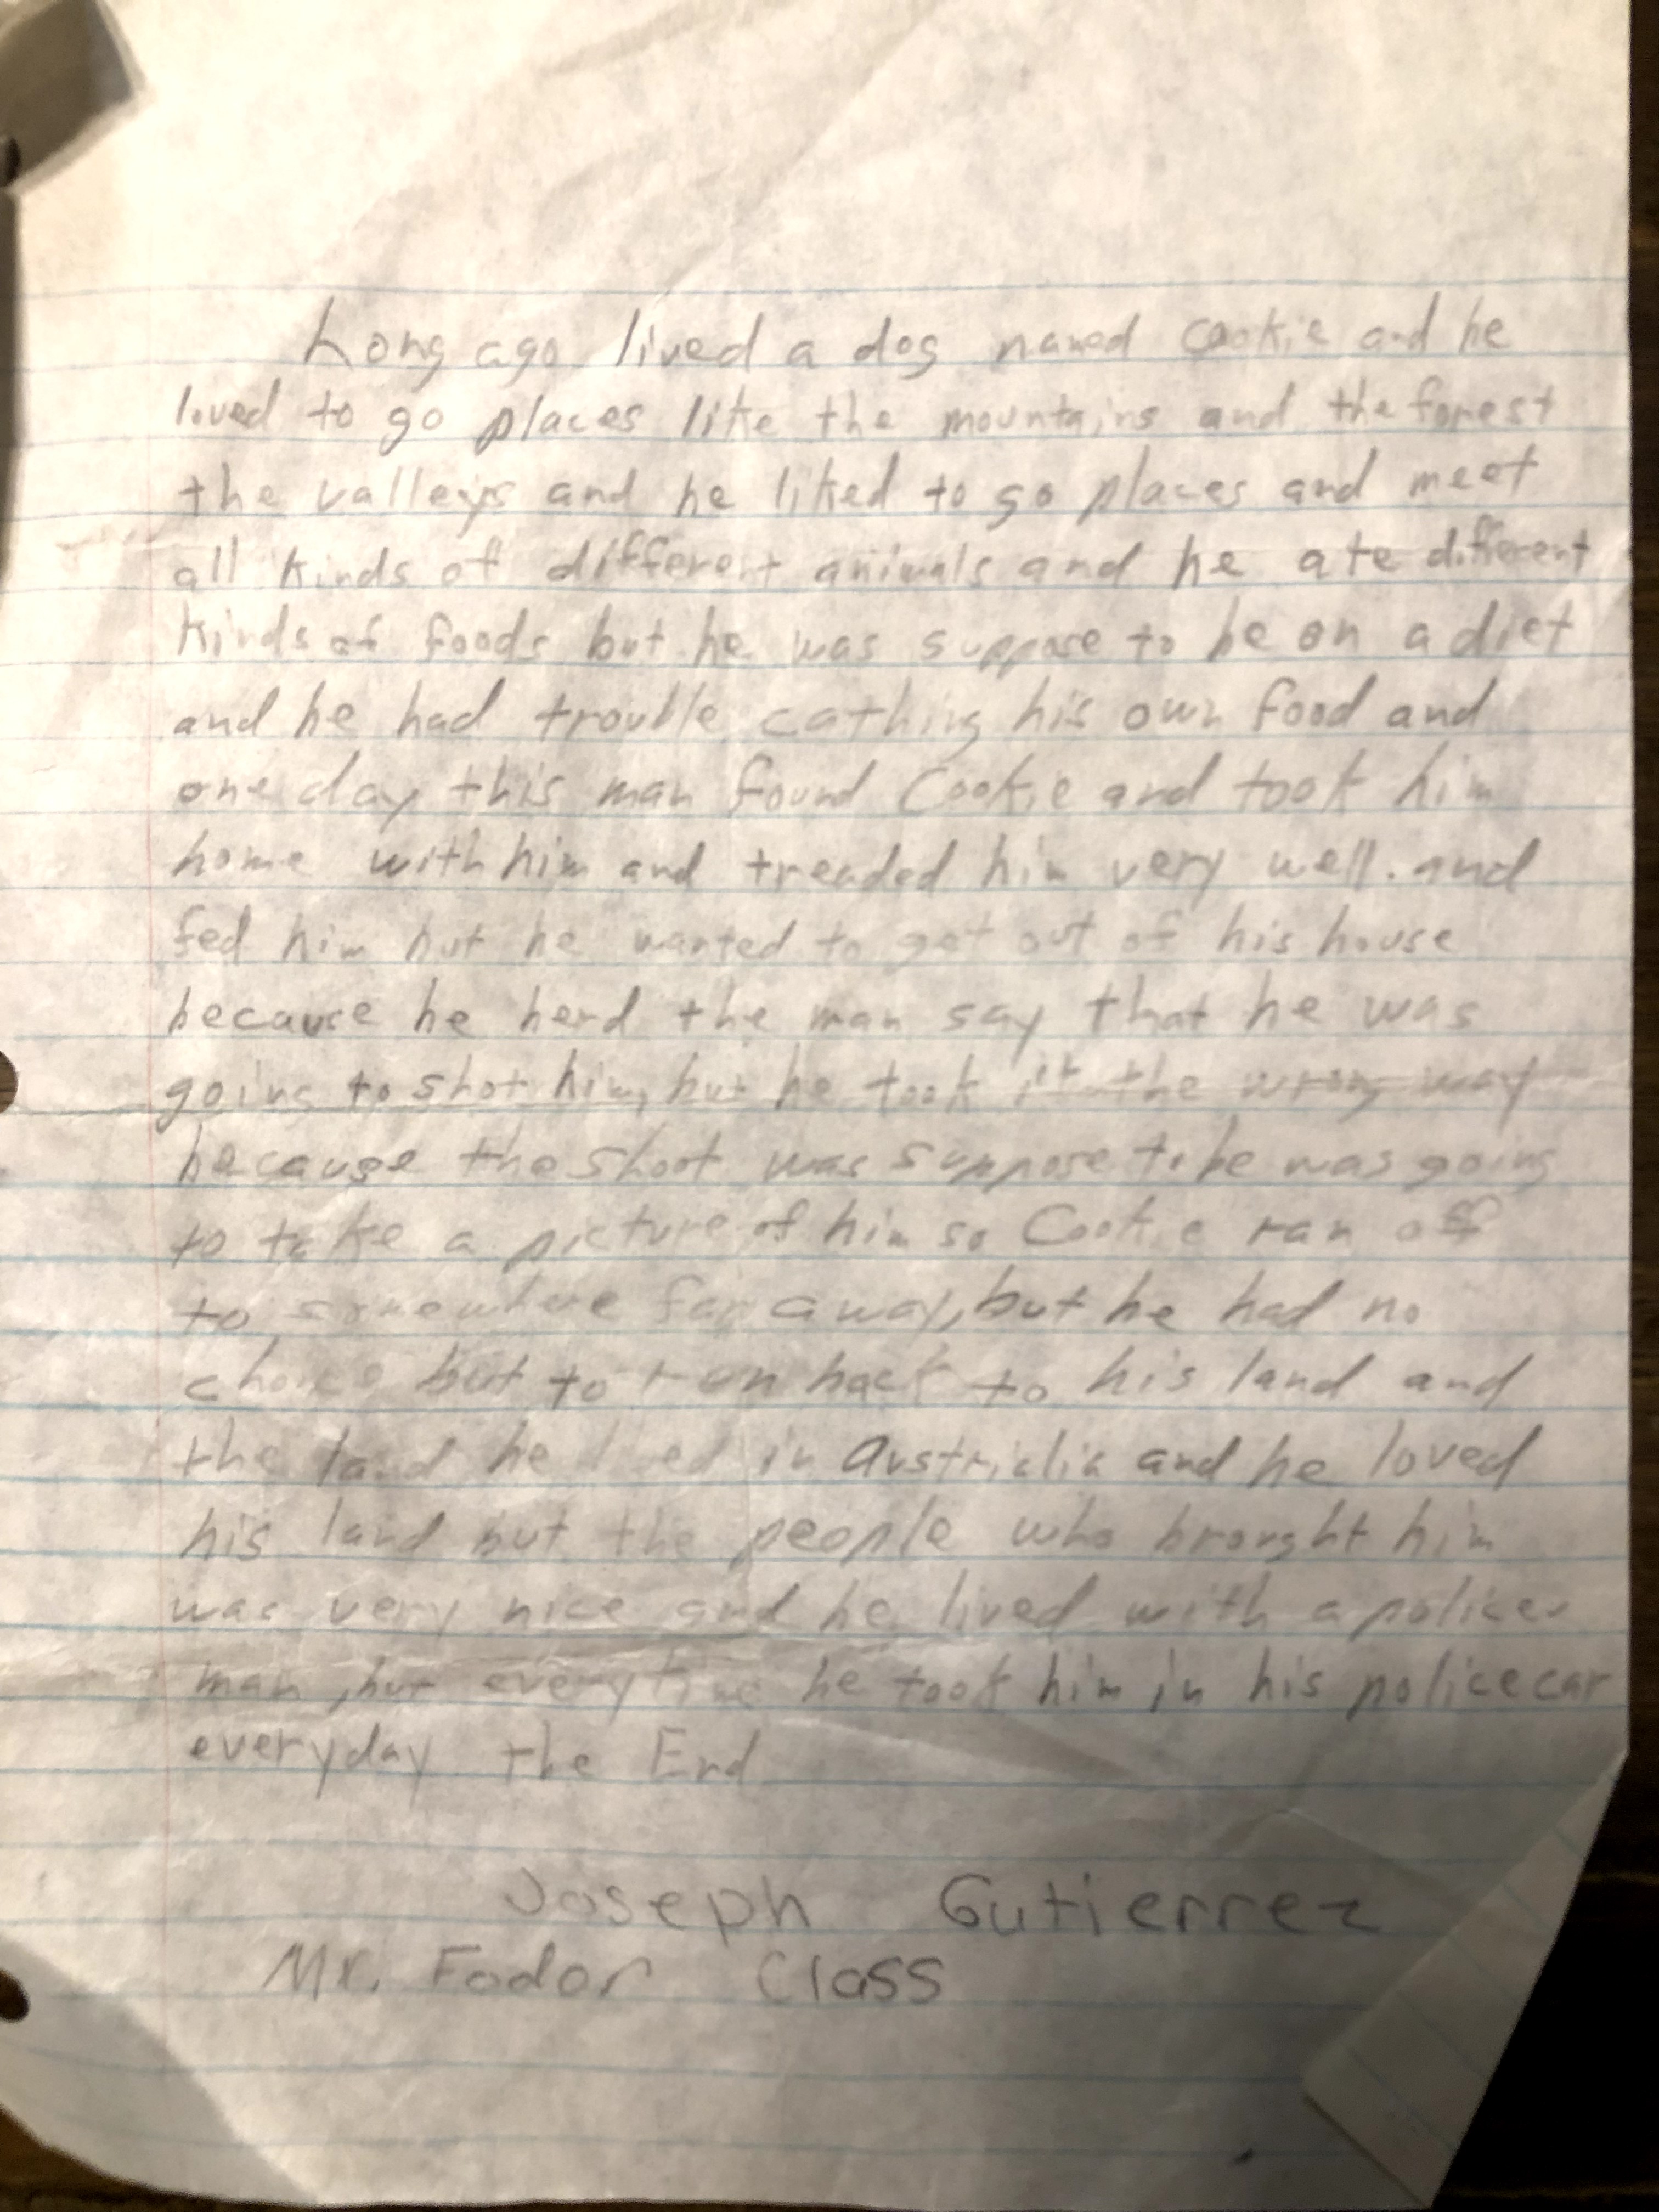 Long ago lived a dog named Cookie and he
loved to go places like the mountains and the forest
the valleys and he liked to go places and meet
all kinds of different animals and he ate different
kinds of foods but he was suppose to be on a diet
and he had trouble cathing his own food and
one day this man found Cookie and took him
home with him and treaded him very well. and
fed him but he wanted to get out of his house
because he herd the man say that he was
going to shot him, but he took it the wrong way
because the shoot was suppose to be was going
to take a picture of him so Cookie ran off
to somewhere far away, but he had no
choice but to run back to his land and
the land he in Austrialia and he loved
his land but the people who brought him
was very nice and he lived with a police
man, but everytime he took him in his policecar
everyday the End
Joseph Gutierrez
Mr. Fodor Class